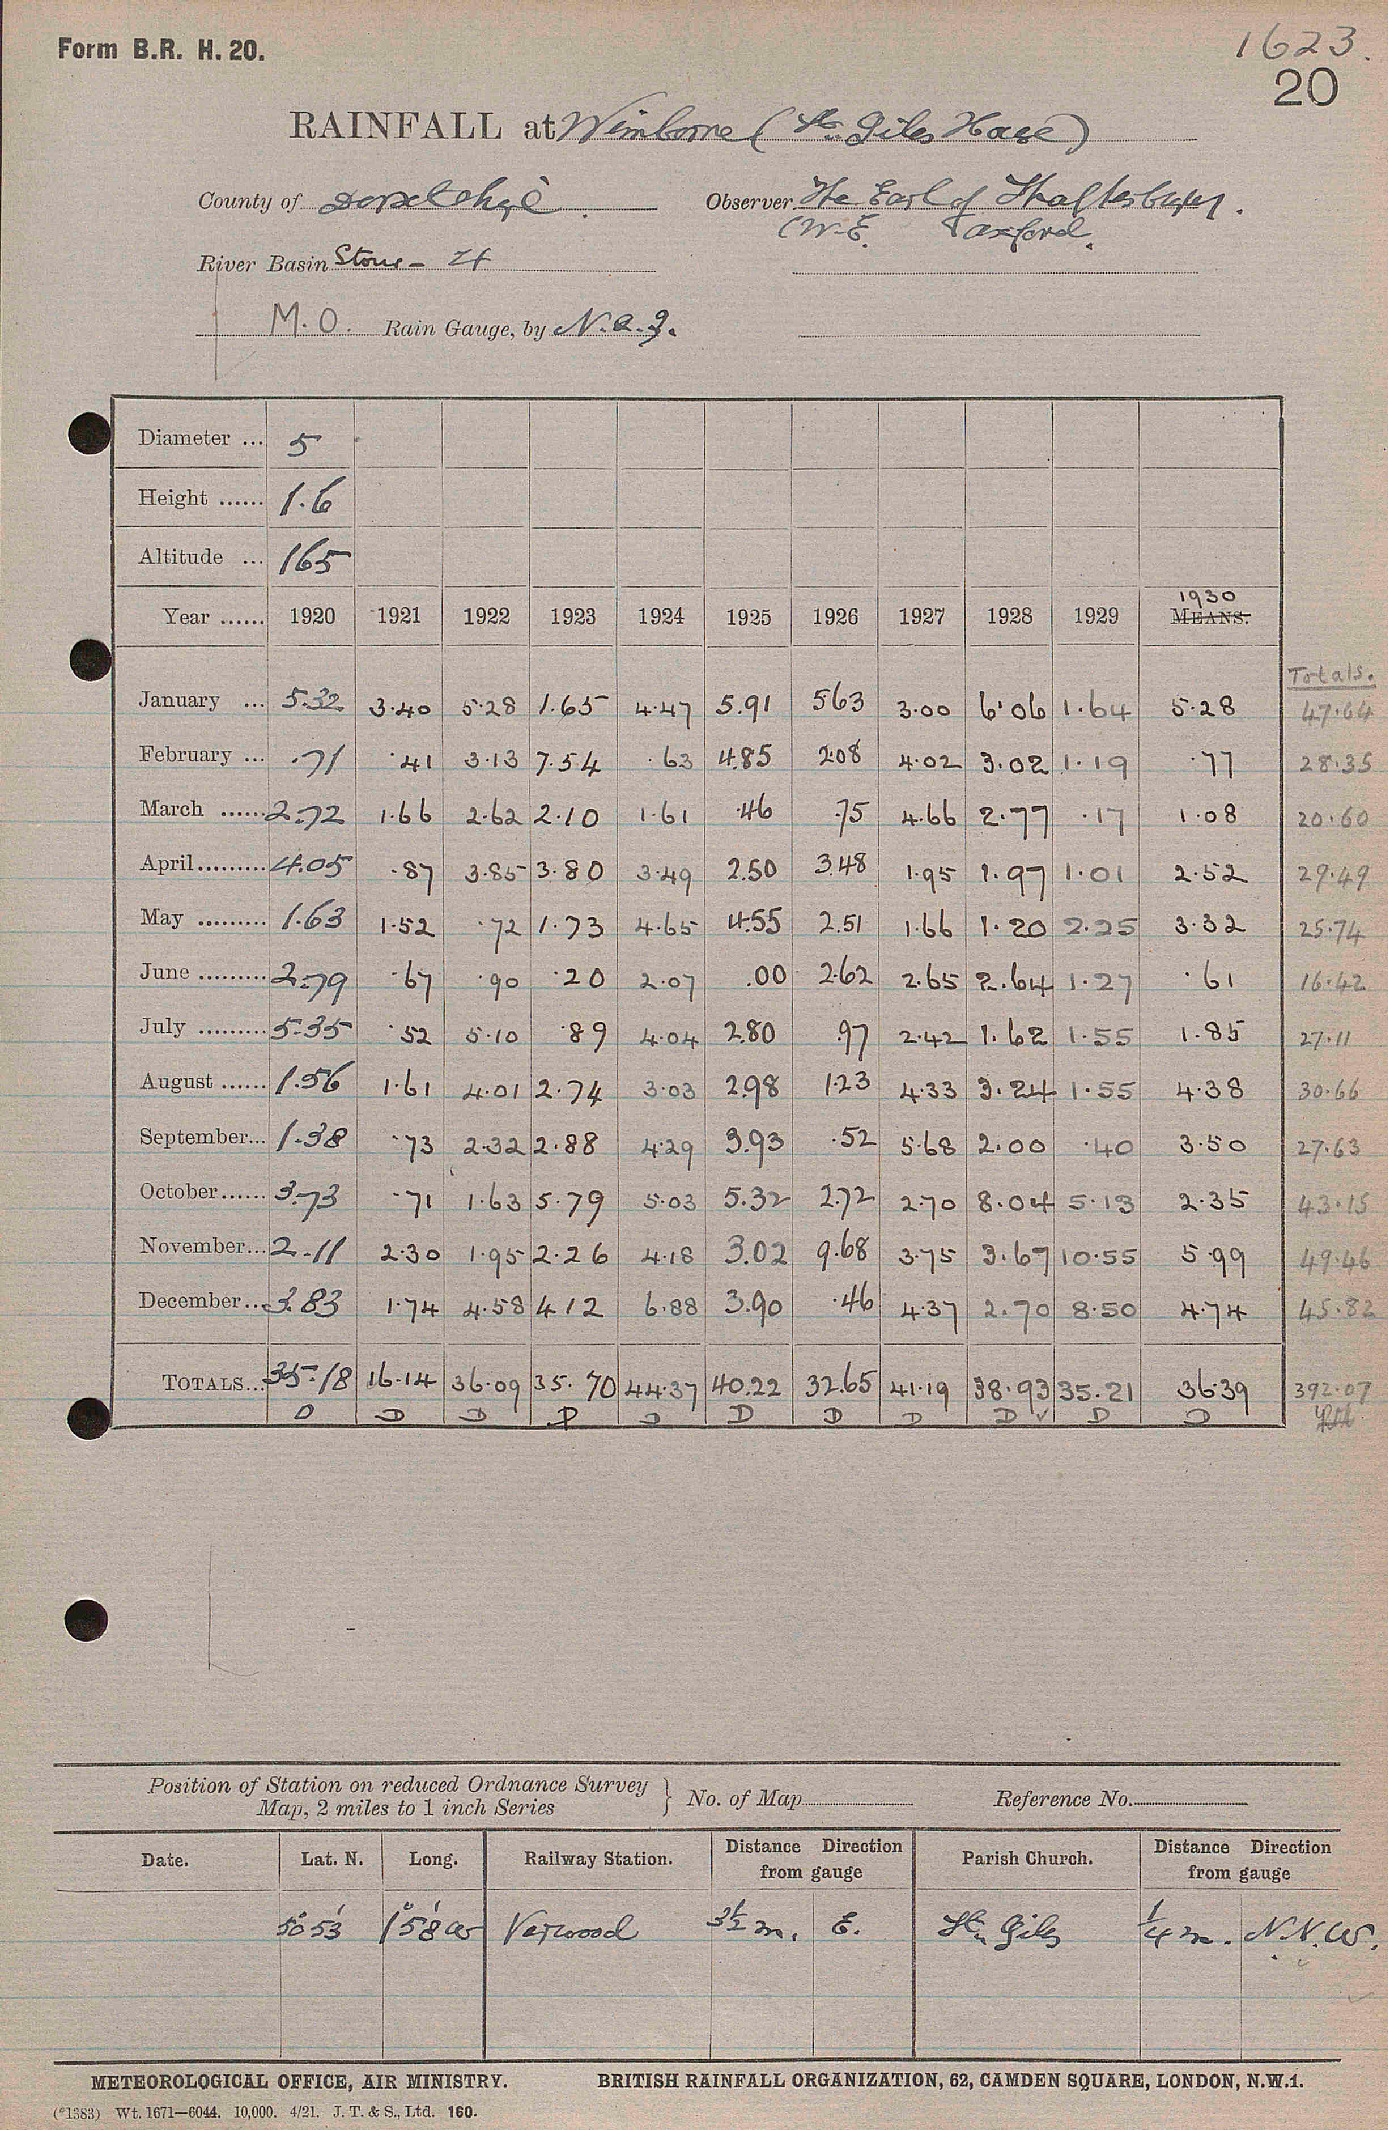 Form B.R. H. 20. 1623.
20
RAINFALL at Wimborne (St. Giles House)
County of Dorsetshire. Observer The Earl of Shaftesbury.
(W.E. Taxford.
River Basin Stour - 2f
M.O. Rain Gauge, by N. & Z.
Diameter ... 5
Height ...... 1.6
Altitude ... 165
1930
Year ...... 1920 1921 1922 1923 1924 1925 1926 1927 1928 1929 MEANS.
Totals.
January ... 5.32 3.40 5.28 1.65 4.47 5.91 5.63 3.00 6.06 1.64 5.28 47.64
February ... .71 .41 3.13 7.54 .63 4.85 2.08 4.02 3.02 1.19 .77 28.35
March ...... 2.72 1.66 2.62 2.10 1.61 .46 .75 4.66 2.77 .17 1.08 20.60
April......... 4.05 .87 3.85 3.80 3.49 2.50 3.48 1.95 1.97 1.01 2.52 29.49
May ......... 1.63 1.52 .72 1.73 4.65 4.55 2.51 1.66 1.20 2.25 3.32 25.74
June ......... 2.79 .67 .90 .20 2.07 .00 2.62 2.65 2.64 1.27 .61 16.42
July ......... 5.35 .52 5.10 .89 4.04 2.80 .97 2.42 1.62 1.55 1.85 27.11
August ...... 1.56 1.61 4.01 2.74 3.03 2.98 1.23 4.33 3.24 1.55 4.38 30.66
September... 1.38 .73 2.32 2.88 4.29 3.93 .52 5.68 2.00 .40 3.50 27.63
October...... 3.73 .71 1.63 5.79 5.03 5.32 2.72 2.70 8.04 5.13 2.35 43.15
November... 2.11 2.30 1.95 2.26 4.18 3.02 9.68 3.75 3.67 10.55 5.99 49.46
December... 3.83 1.74 4.58 4.12 6.88 3.90 .46 4.37 2.70 8.50 4.74 45.82
TOTALS... 35.18 16.14 36.09 35.70 44.37 40.22 32.65 41.19 38.93 35.21 36.39 392.07
D D D D D D D D D v D D
Position of Station on reduced Ordnance Survey
Map, 2 miles to 1 inch Series } No. of Map Reference No.
Date. Lat. N. Long. Railway Station. Distance Direction from gauge Parish Church. Distance Direction from gauge
50°53' 1°58'W Verwood 3½ m. E. St. Giles ¼ m. N.N.W.
METEOROLOGICAL OFFICE, AIR MINISTRY. BRITISH RAINFALL ORGANIZATION, 62, CAMDEN SQUARE, LONDON, N.W.1.
(*1383) Wt. 1671—6044. 10,000. 4/21. J. T. & S., Ltd. 160.